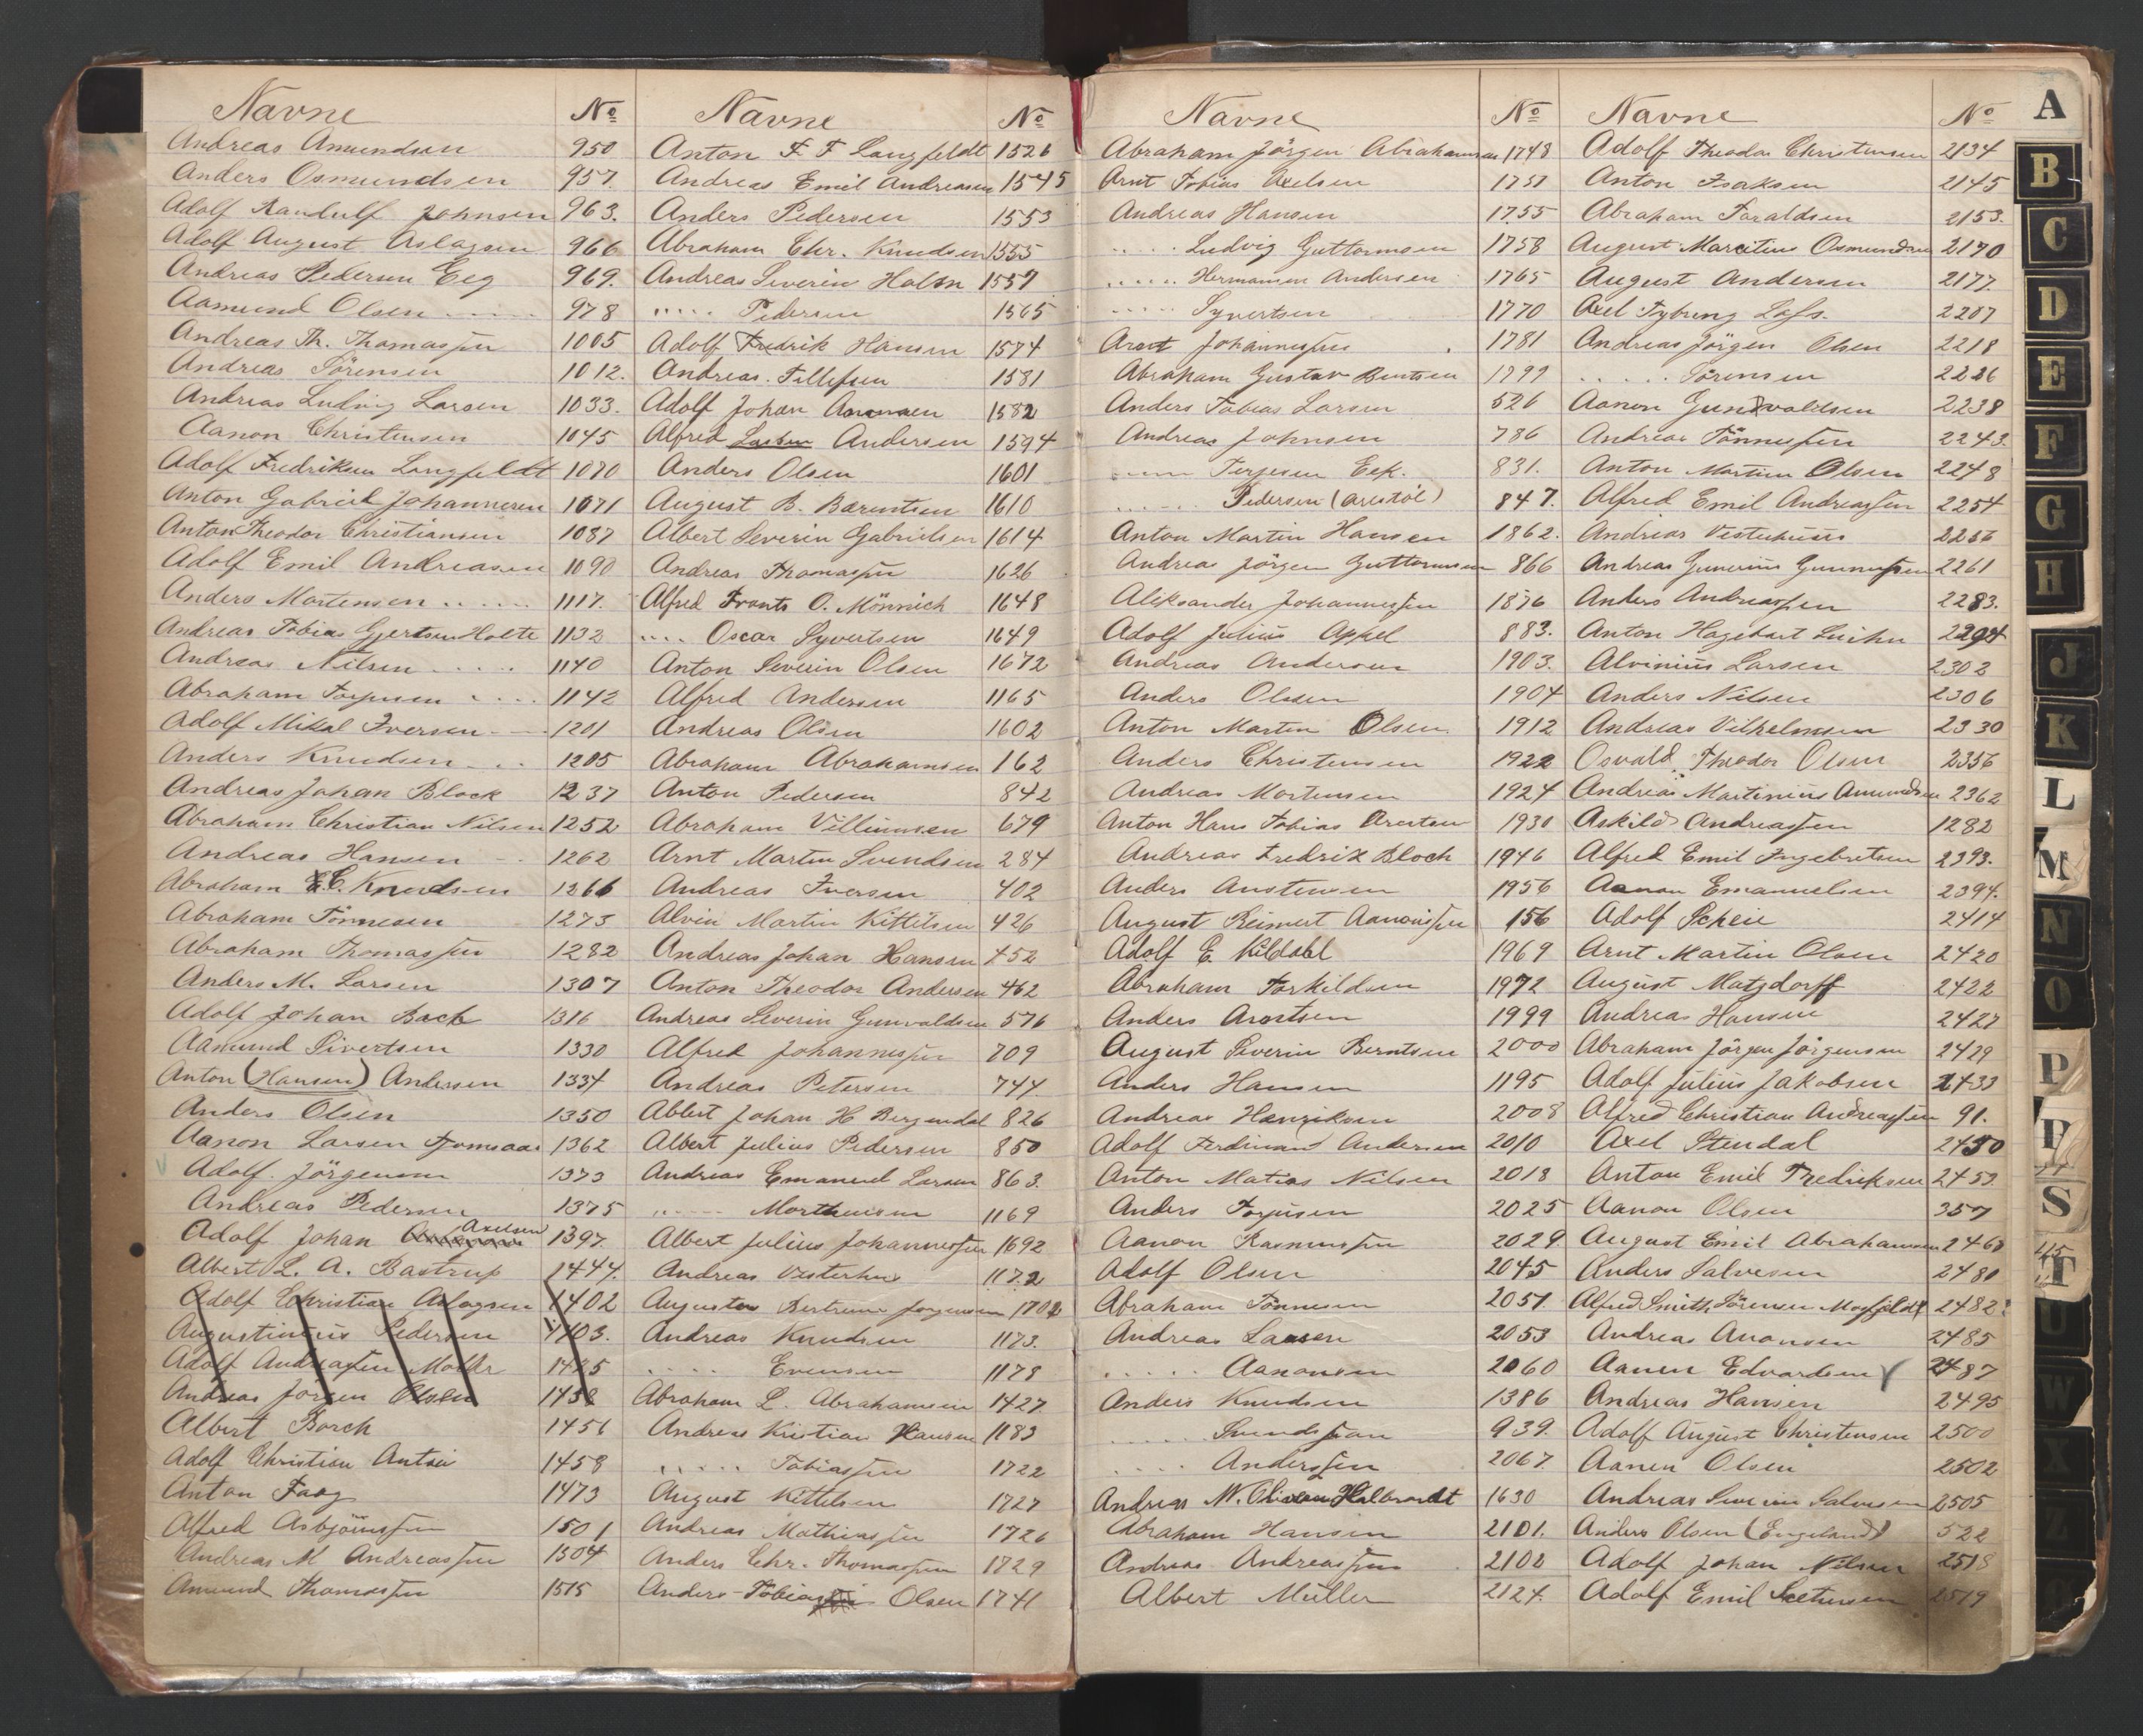 Navne No
Andreas Amundsen 950
Anders Osmundsen 957.
Adolf Randulf Johnsen 963.
Adolf August Aslagsen 966
Andreas Pedersen Eeg 969.
Aamund Olsen 978
Andreas Th. Thomassen 1005
Andreas Sörensen 1012.
Andreas Ludvig Larsen 1033.
Aanon Christensen 1045
Adolf Fredriksen Langfeldt 1070
Anton Gabriel Johannesen 1071
Anton Theodor Christiansen 1087
Adolf Emil Andreasen 1090
Anders Mortensen 1117.
Andreas Tobias Gjertsen Holte 1132
Andreas Nilsen 1140
Abraham Torjusen 1142
Adolf Mikal Iversen 1201
Anders Knudsen 1205
Andreas Johan Block 1237
Abraham Christian Nilsen 1252
Andreas Hansen 1262
Abraham C. Knudsen 1266
Abraham Tönnesen 1273
Abraham Thomassen 1282
Anders M. Larsen 1307
Adolf Johan Bach 1316
Aamund Sivertsen 1330
Anton (Hansen) Andersen 1334
Anders Olsen 1350
Aanon Larsen 1362
Adolf Jörgensen 1373
Andreas Pedersen 1375
Adolf Johan Axelsen 1397.
Albert L. A. Bastrup 1444.
Adolf Christian Aslagsen 1402
Augustinius Pedersen 1403.
Adolf Andreassen Møller 1425
Andreas Jörgen Olsen 1438
Albert Borch 1456
Adolf Christian 1458
Anton Faag 1473
Alfred Asbjörnssen 1501
Andreas M Andreassen 1504
Amund Thomassen 1515
Navne No
Anton F. F Langfeldt 1526
Andreas Emil Andreasen 1545
Anders Pedersen 1553
Abraham Chr. Knudsen 1555
Andreas Severin Holm 1557
..... Pedersen 1565
Adolf Fredrik Hansen 1574
Andreas Tellefsen 1581
Adolf Johan 1582
Alfred Larsen Andersen 1594
Anders Olsen 1601
August B. Barentsen 1610
Albert Severin Gabrielsen 1614
Andreas Thomassen 1626
Alfred Frants O. Mönnich 1648
.... Oscar Syvertsen 1649
Anton Severin Olsen 1672
Alfred Andersen 1165
Andreas Olsen 1602
Abraham Abrahamsen 162
Anton Pedersen 842
Abraham Villumsen 679
Arnt Martin Svendsen 284
Andreas Iversen 402
Alvin Martin Kittelsen 426
Andreas Johan Hansen 452
Anton Theodor Andersen 462
Andreas Severin Gunvaldsen 576
Alfred Johannessen 709
Andreas Petersen 744.
Albert Johan H Bergendal 826
Albert Julius Pedersen 850
Andreas Emanuel Larsen 863.
..... Mortensen 1169
Albert Julius Johannessen 1692
Andreas Vesterhus 1172
Augustus Jørgensen 1702
Andreas Knudsen 1173.
.... Evensen 1178
Abraham L. Abrahamsen 1427.
Andreas Kristian Hansen 1183
..... Tobiassen 1722
August Kittelsen 1727
Andreas Mathiassen 1726
Anders Chr. Thomassen 1729
Anders Tobias Olsen 1741
Navne No
Abraham Jörgen Abrahamsen 1748
Arnt Tobias Axelsen 1751
Andreas Hansen 1755
..... Ludvig Guttormsen 1758
..... Hermansen Andersen 1765
..... Syvertsen 1770
Arent Johannessen 1781
Abraham Gustav Bentsen 1799
Anders Tobias Larsen 526
Andreas Johnsen 786
..... Terjesen Eek. 831.
..... Pedersen (arestöl) 847.
Anton Martin Hansen 1862.
Andreas Jörgen Guttormsen 866
Aleksander Johannessen 1876
Adolf Julius Appel 883.
Andreas Andersen 1903.
Anders Olsen 1904
Anton Martin Olsen 1912
Anders Christensen 1922
Andreas Mortensen 1924
Anton Hans Tobias Arentsen 1930
Andreas Fredrik Bloch 1946
Anders Austensen 1956
August Reimert Aanonssen 156
Adolf E. Kildahl 1969
Abraham Torkildsen 1972
Anders Arentsen 1999
August Severin Berntsen 2000
Anders Hansen 1195
Andreas Henriksen 2008
Adolf Ferdinand Andersen 2010
Anton Matias Nilsen 2018
Anders Torjusen 2025
Aanon Rasmussen 2029.
Adolf Olsen 2045
Abraham Tönnesen 2051.
Andreas Larsen 2053
..... Aanonsen 2060
Anders Knudsen 1386
..... 939.
..... Anderssen 2067.
Andreas N. Halbrandt 1630
Abraham Hansen 2101.
Andreas Andreassen 2102
Albert Müller 2124.
Navne No
Adolf Theodor Christensen 2134
Anton Isaksen 2145
Abraham Taraldsen 2153.
August Mauritius Osmundsen 2170
August Andersen 2177.
Axel Fybring Lass. 2207
Andreas Jörgen Olsen 2218
..... Sörensen 2226
Aanon Gundvaldsen 2238
Andreas Tönnessen 2243.
Anton Martin Olsen 2248
Alfred Emil Andreassen 2254
Andreas Vesterhuus 2256
Andreas Gunerius Gunnufsen 2261
Anders Andreassen 2283.
Anton Hagebart 2294
Alvinius Larsen 2302
Anders Nilsen 2306
Andreas Vilhelmsen 2330
Osvald Theodor Olsen 2356
Andreas Martinius Amundsen 2362
Askild Andreassen 1282
Alfred Emil Ingebretsen 2393.
Aanon Emanuelsen 2394.
Adolf Scheie 2414
Arnt Martin Olsen 2420
August Matzdorff 2422
Andreas Hansen 2427
Abraham Jörgen Jörgensen 2429
Adolf Julius Jakobsen 2433
Alfred Christian Andreassen 91.
Axel Stendal 2450
Anton Emil Fredriksen 2453.
Aanon Olsen 357
August Emil Abrahamsen 2468
Anders Salvesen 2480
Alfred Smith Sörensen Moyfeldt 2482
Andreas Aanonsen 2485
Aanen Edvardsen 2487
Andreas Hansen 2495
Adolf August Christensen 2500
Aanen Olsen 2502
Andreas Severin Salvesen 2505
Anders Olsen (Engeland) 522
Adolf Johan Nilsen 2518
Adolf Emil 2519
A
B
C
D
E
F
G
H
J
K
L
M
N
O
P
S
T
U
W
X
Z